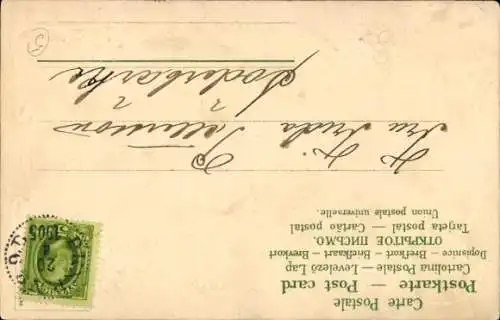 Carte Postale
Postkarte — Post card
Cartolina Postale — Levelező Lap
Dopisnice — Brefkort — Briefkaart — Brevkort
ОТКРЫТОЕ ПИСЬМО.
Tarjeta postal — Cartão postal
Union postale universelle.
Frida
Söderbärke
1905